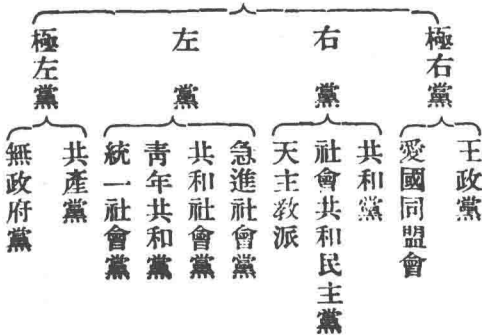 極右黨
王政黨
愛國同盟會
右黨
共和黨
社會共和民主黨
天主敎派
左黨
急進社會黨
共和社會黨
靑年共和黨
統一社會黨
極左黨
共產黨
無政府黨